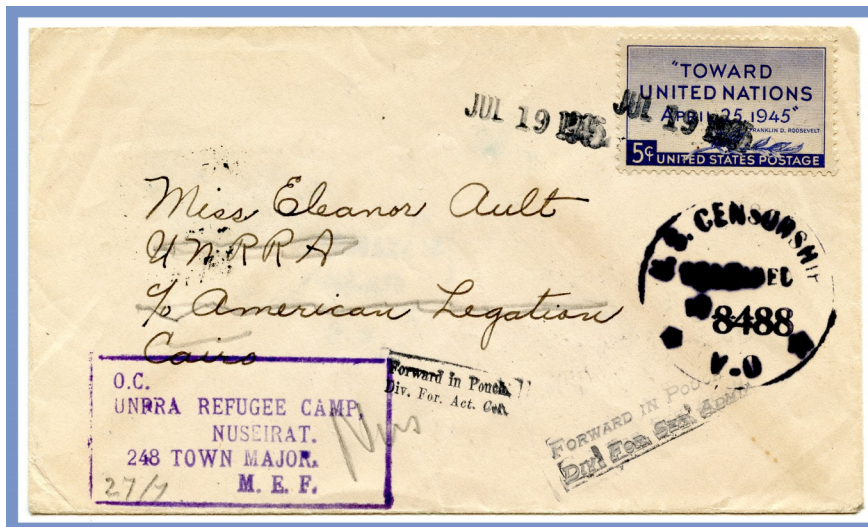 JUL 19 1945
JUL 19 1945
"TOWARD
UNITED NATIONS
APRIL 25, 1945"
FRANKLIN D. ROOSEVELT
5¢ UNITED STATES POSTAGE
Miss Eleanor Ault
UNRRA
c/o American Legation
Cairo
U.S. CENSORSHIP
8488
Forward in Pouch
Div. For. Act. Cor.
FORWARD IN POUCH
DIV. FOR. SER. ADMIN
O.C.
UNRRA REFUGEE CAMP,
NUSEIRAT.
248 TOWN MAJOR.
M. E. F.
27/7
Nus